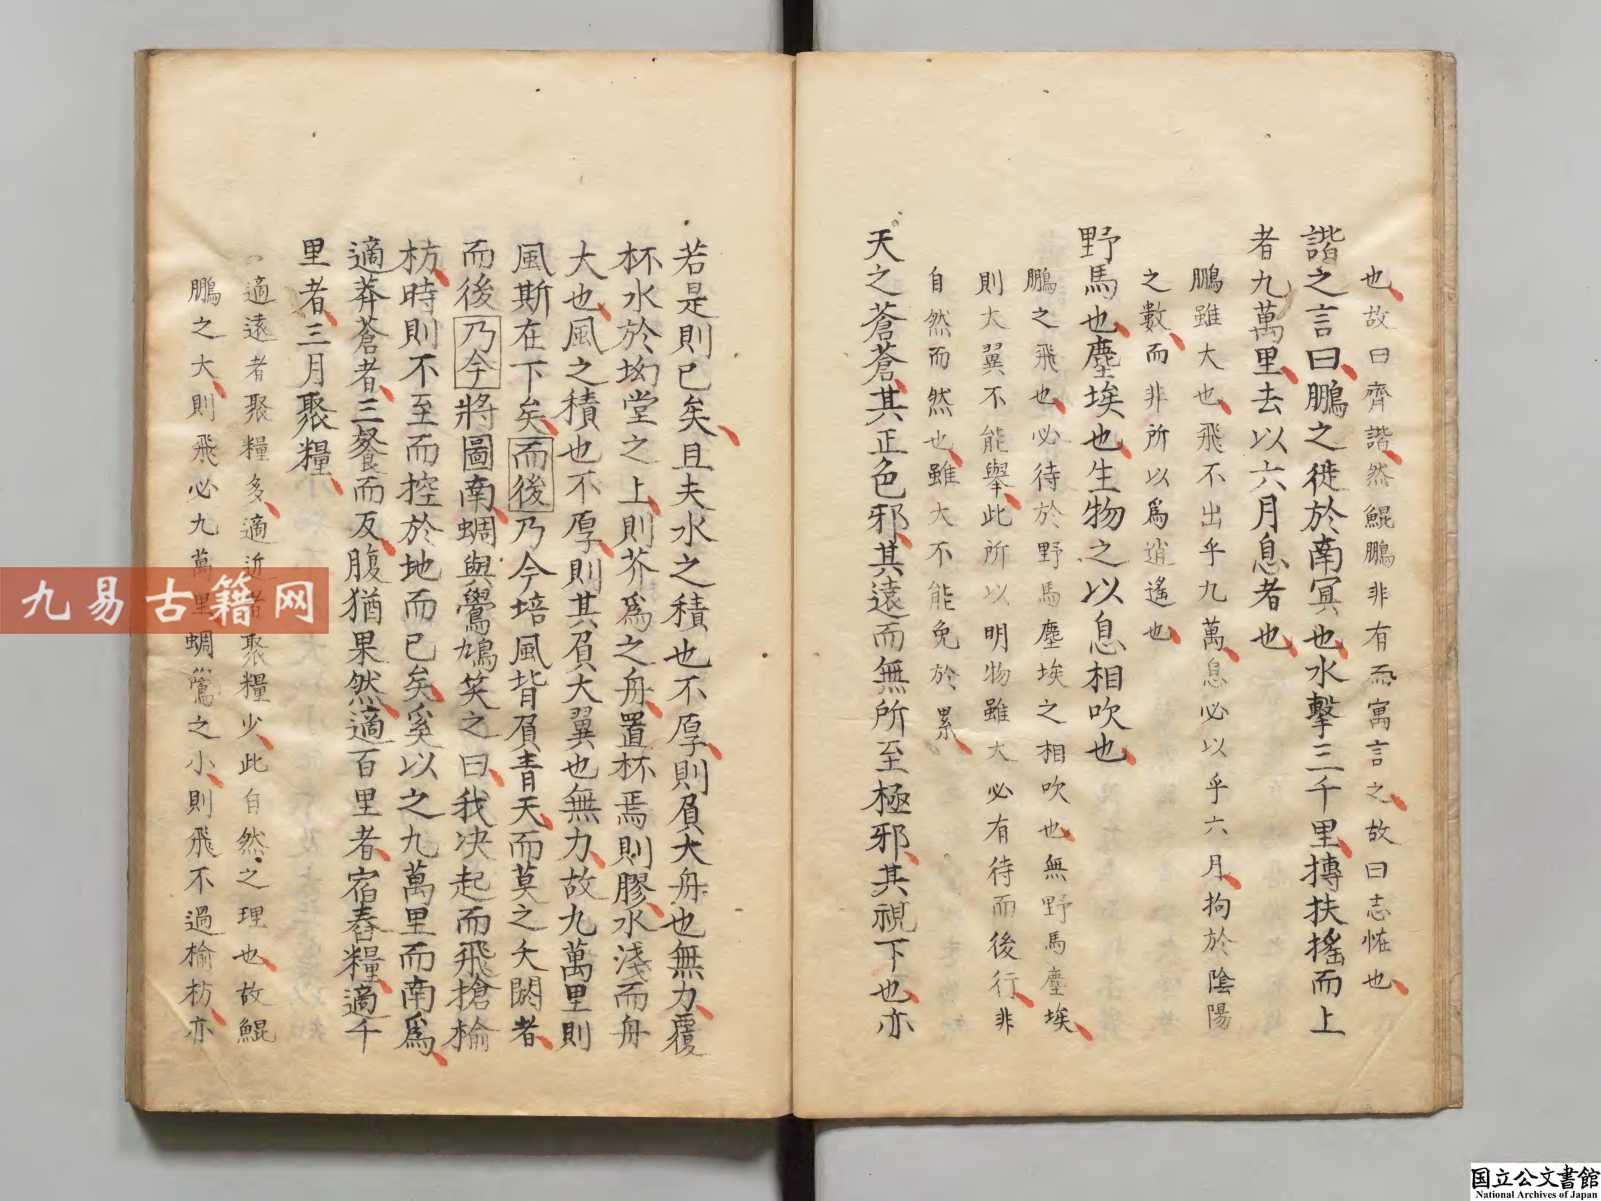 也故曰齊諧然鯤鵬非有而寓言之故曰志恠也
諧之言曰鵬之徙於南冥也水擊三千里摶扶搖而上
者九萬里去以六月息者也
鵬雖大也飛不出乎九萬息必以乎六月拘於陰陽
之數而非所以爲逍遙也
野馬也塵埃也生物之以息相吹也
鵬之飛也必待於野馬塵埃之相吹也無野馬塵埃
則大翼不能舉此所以明物雖大必有待而後行非
自然而然也雖大不能免於累
天之蒼蒼其正色邪其遠而無所至極邪其視下也亦
若是則已矣且夫水之積也不厚則負大舟也無力覆
杯水於坳堂之上則芥爲之舟置杯焉則膠水淺而舟
大也風之積也不厚則其負大翼也無力故九萬里則
風斯在下矣而後乃今培風背負青天而莫之夭閼者
而後乃今將圖南蜩與鷽鳩笑之曰我決起而飛搶榆
枋時則不至而控於地而已矣奚以之九萬里而南爲
適莽蒼者三飡而反腹猶果然適百里者宿舂糧適千
里者三月聚糧
適遠者聚糧多適近者聚糧少此自然之理也故鯤
鵬之大則飛必九萬里蜩鷽之小則飛不過榆枋亦
九易古籍网
国立公文書館
National Archives of Japan